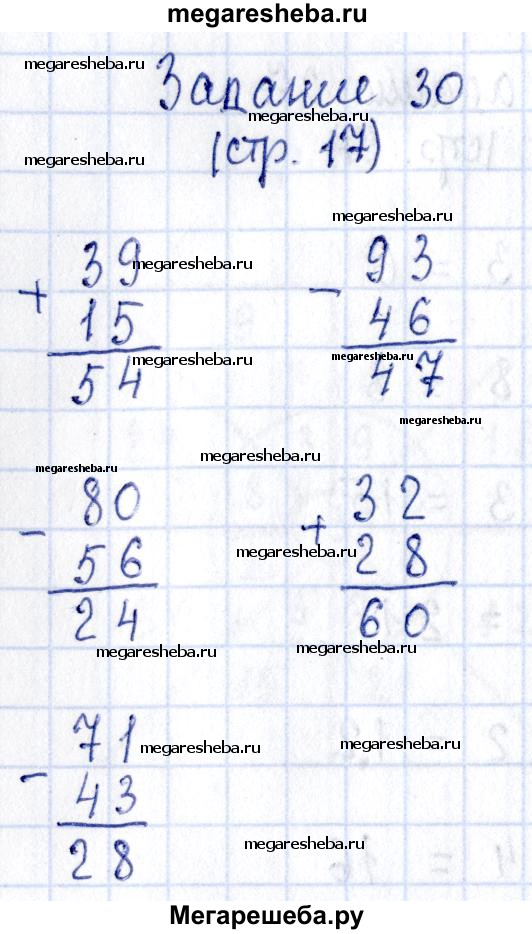 megaresheba.ru
megaresheba.ru
Задание 30
megaresheba.ru
megaresheba.ru
(стр. 17)
megaresheba.ru
39 megaresheba.ru
+
15
megaresheba.ru
54
93
-
46
megaresheba.ru
47
megaresheba.ru
megaresheba.ru
megaresheba.ru
80
-
56
24
megaresheba.ru
32
+
28
megaresheba.ru
60
megaresheba.ru
71 megaresheba.ru
-
43
28
megaresheba.ru
megaresheba.ru
Мегарешеба.ру